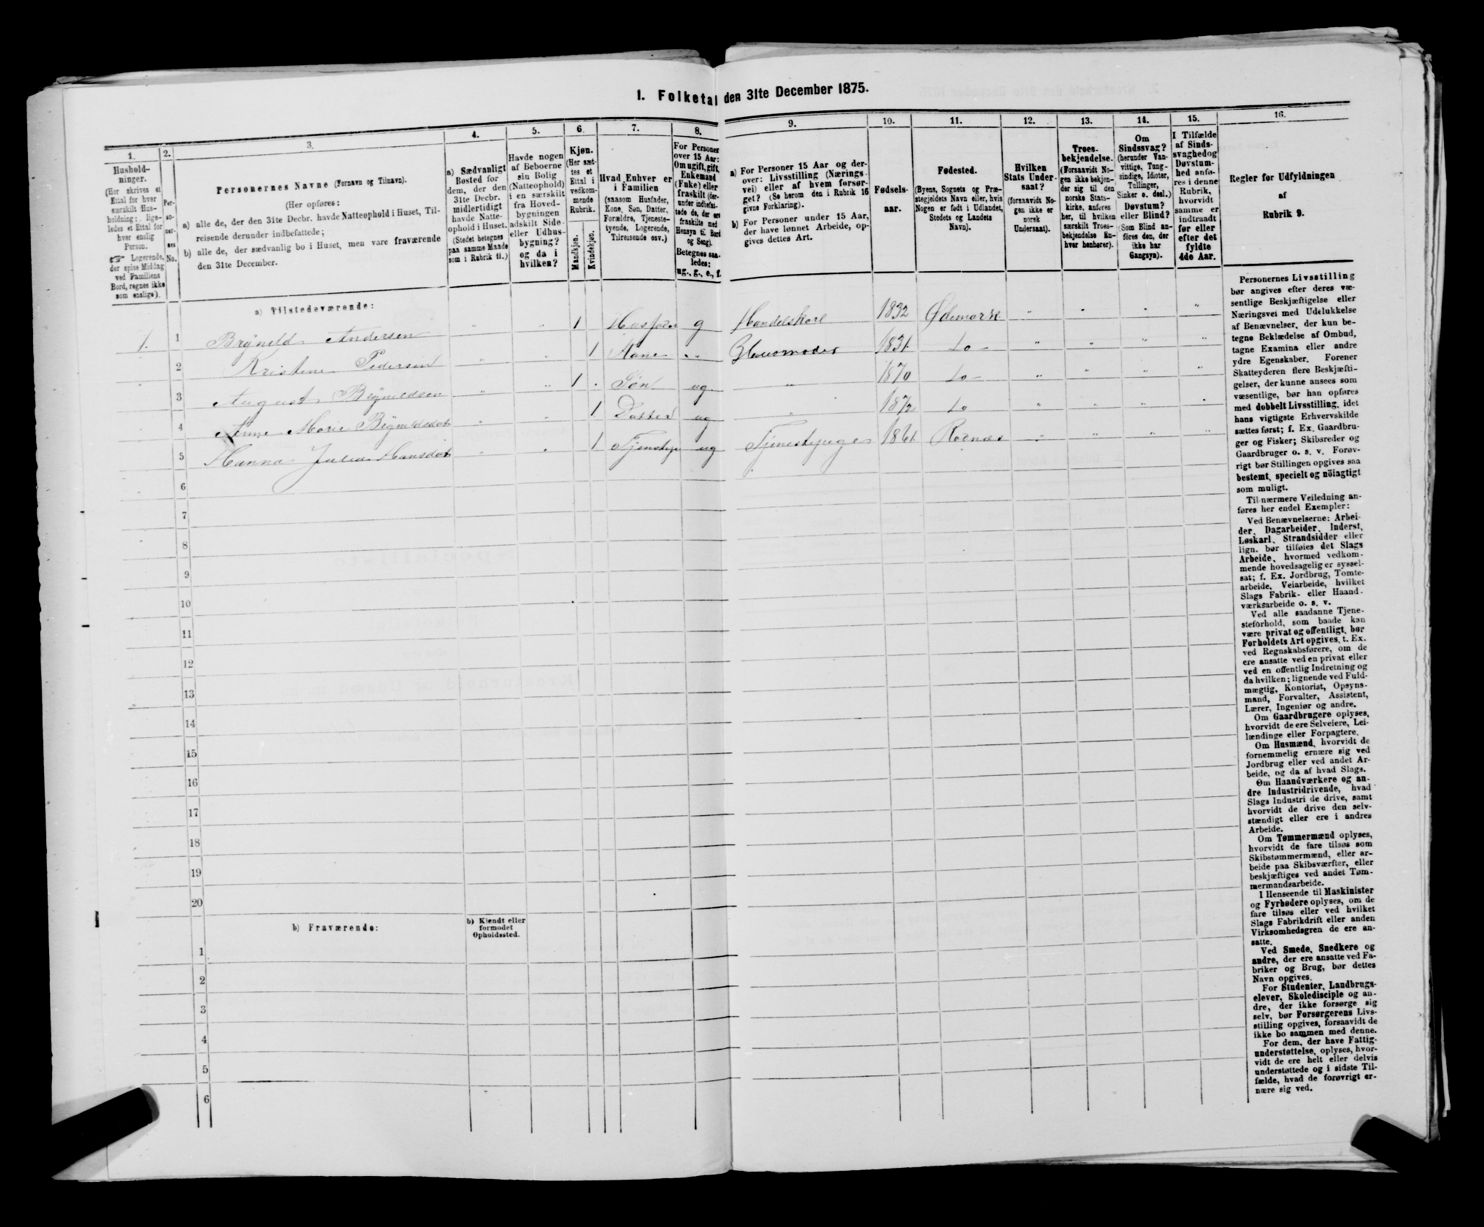 1. Folketal den 31te December 1875.
1.
Hushold-
ninger.
(Her skrives et
Ettal for hver
særskilt Hus-
holdning; lige-
ledes et Ettal for
hver enslig
Person.
Logerende,
der spise Middag
ved Familiens
Bord, regnes ikke
som enslige).
2.
Per-
so-
ner-
nes
No.
3.
Personernes Navne (Fornavn og Tilnavn).
(Her opføres:
a) alle de, der den 31te Decbr. havde Natteophold i Huset, Til-
reisende derunder indbefattede;
b) alle de, der sædvanlig bo i Huset, men vare fraværende
den 31te December.
4.
a) Sædvanligt
Bosted for
dem, der den
31te Decbr.
midlertidigt
havde Natte-
ophold i Huset.
(Stedet betegnes
paa samme Maade
som i Rubrik 11.)
5.
Havde nogen
af Beboerne
sin Bolig
(Natteophold)
i en særskilt
fra Hoved-
bygningen
adskilt Side-
eller Udhus-
bygning?
og da i
hvilken?
6.
Kjøn.
(Her sæt-
tes et
Ettal i
vedkom-
mende
Rubrik.
Mandkjøn.
Kvindekjøn.
7.
Hvad Enhver er
i Familien
(saasom Husfader,
Kone, Søn, Datter,
Forældre, Tjeneste-
tyende, Logerende,
Tilreisende osv.)
8.
For Personer
over 15 Aar:
Om ugift, gift,
Enkemand
(Enke) eller
fraskilt (der-
under indbefat-
tede de, der ere
fraskilte med
Hensyn til Bord
og Seng).
Betegnes saa-
ledes:
ug., g., e., f.
9.
a) For Personer 15 Aar og der-
over: Livsstilling (Nærings-
vei) eller af hvem forsør-
get? (Se herom den i Rubrik 16
givne Forklaring).
b) For Personer under 15 Aar,
der have lønnet Arbeide, op-
gives dettes Art.
10.
Fødsels-
aar.
11.
Fødested.
(Byens, Sognets og Præ-
stegjeldets Navn eller, hvis
Nogen er født i Udlandet,
Stedets og Landets
Navn).
12.
Hvilken
Stats Under-
saat?
(forsaavidt No-
gen ikke er
norsk
Undersaat).
13.
Troes-
bekjendelse.
(Forsaavidt No-
gen ikke bekjen-
der sig til den
norske Stats-
kirke, anføres
her, til hvilken
særskilt Troes-
bekjendelse En-
hver henhører).
14.
Om
Sindssvag?
(herunder Van-
vittige, Tung-
sindige, Idioter,
Tullinger,
Sinker o. desl.)
Døvstum?
eller Blind?
(Som Blind an-
føres den, der
ikke har
Gangsyn).
15.
I Tilfælde
af Sinds-
svaghed og
Døvstum-
hed anfø-
res i denne
Rubrik,
hvorvidt
samme er
indtraadt
før eller
efter det
fyldte
4de Aar.
16.
Regler for Udfyldningen
af
Rubrik 9.
a) Tilstedeværende:
1. 1 Bryneld Andersen " " 1 Husfader g Handelskarl 1832 Ødemark " " " "
2 Kristine Pedersen " " 1 Kone " " 1831 do " " " "
3 August Bryneldsen " " 1 Søn ug " 1870 do " " " "
4 Anne Marie Bryneldsdat " " 1 Datter ug " 1872 do " " " "
5 Hanna Julia Hansdat " " 1 ug Tjenestepige 1861 " " " "
6
7
8
9
10
11
12
13
14
15
16
17
18
19
20
b) Fraværende:
b) Kjendt eller
formodet
Opholdssted.
1
2
3
4
5
6
Personernes Livsstilling
bør angives efter deres væ-
sentlige Beskjæftigelse eller
Næringsvei med Udelukkelse
af Benævnelser, der kun be-
tegne Beklædelse af Ombud,
tagne Examina eller andre
ydre Egenskaber. Forener
Skatteyderen flere Beskjæfti-
gelser, der kunne ansees som
væsentlige, bør han opføres
med dobbelt Livsstilling, idet
hans vigtigste Erhvervskilde
sættes først; f. Ex. Gaardbru-
ger og Fisker; Skibsreder og
Gaardbruger o. s. v. Forøv-
rigt bør Stillingen opgives saa
bestemt, specielt og nøiagtigt
som muligt.
Til nærmere Veiledning an-
føres her endel Exempler:
Ved Benævnelserne: Arbei-
der, Dagarbeider, Inderst,
Løskarl, Strandsidder eller
lign. bør tilføies det Slags
Arbeide, hvormed vedkom-
mende hovedsagelig er syssel-
sat; f. Ex. Jordbrug, Tomte-
arbeide, Veiarbeide, hvilket
Slags Fabrik- eller Haand-
værksarbeide o. s. v.
Ved alle saadanne Tjene-
steforhold, som baade kan
være privat og offentligt, bør
Forholdets Art opgives, t. Ex.
ved Regnskabsførere, om de
ere ansatte ved en privat eller
ved en offentlig Indretning og
da hvilken; lignende ved Fuld-
mægtig, Kontorist, Opsyns-
mand, Forvalter, Assistent,
Lærer, Ingeniør og andre.
Om Gaardbrugere oplyses,
hvorvidt de ere Selveiere, Lei-
lændinge eller Forpagtere.
Om Husmænd, hvorvidt de
fornemmelig ernære sig ved
Jordbrug eller ved andet Ar-
beide, og da af hvad Slags.
Om Haandværkere og an-
dre Industridrivende, hvad
Slags Industri de drive, samt
hvorvidt de drive den selv-
stændigt eller ere i andres
Arbeide.
Om Tømmermænd oplyses,
hvorvidt de fare tilsøs som
Skibstømmermænd, eller ar-
beide paa Skibsværfter, eller
beskjæftiges ved andet Tøm-
mermandsarbeide.
I Henseende til Maskinister
og Fyrbødere oplyses, om de
fare tilsøs eller ved hvilket
Slags Fabrikdrift eller anden
Virksomhedsgren de ere an-
satte.
Ved Smede, Snedkere og
andre, der ere ansatte ved Fa-
briker og Brug, bør dettes
Navn opgives.
For Studenter, Landbrugs-
elever, Skoledisciple og an-
dre, der ikke forsørge sig
selv, bør Forsørgerens Livs-
stilling opgives, forsaavidt de
ikke bo sammen med denne.
For dem, der have Fattig-
understøttelse, oplyses, hvor-
vidt de ere helt eller delvis
understøttede og i sidste Til-
fælde, hvad de forøvrigt er-
nære sig ved.